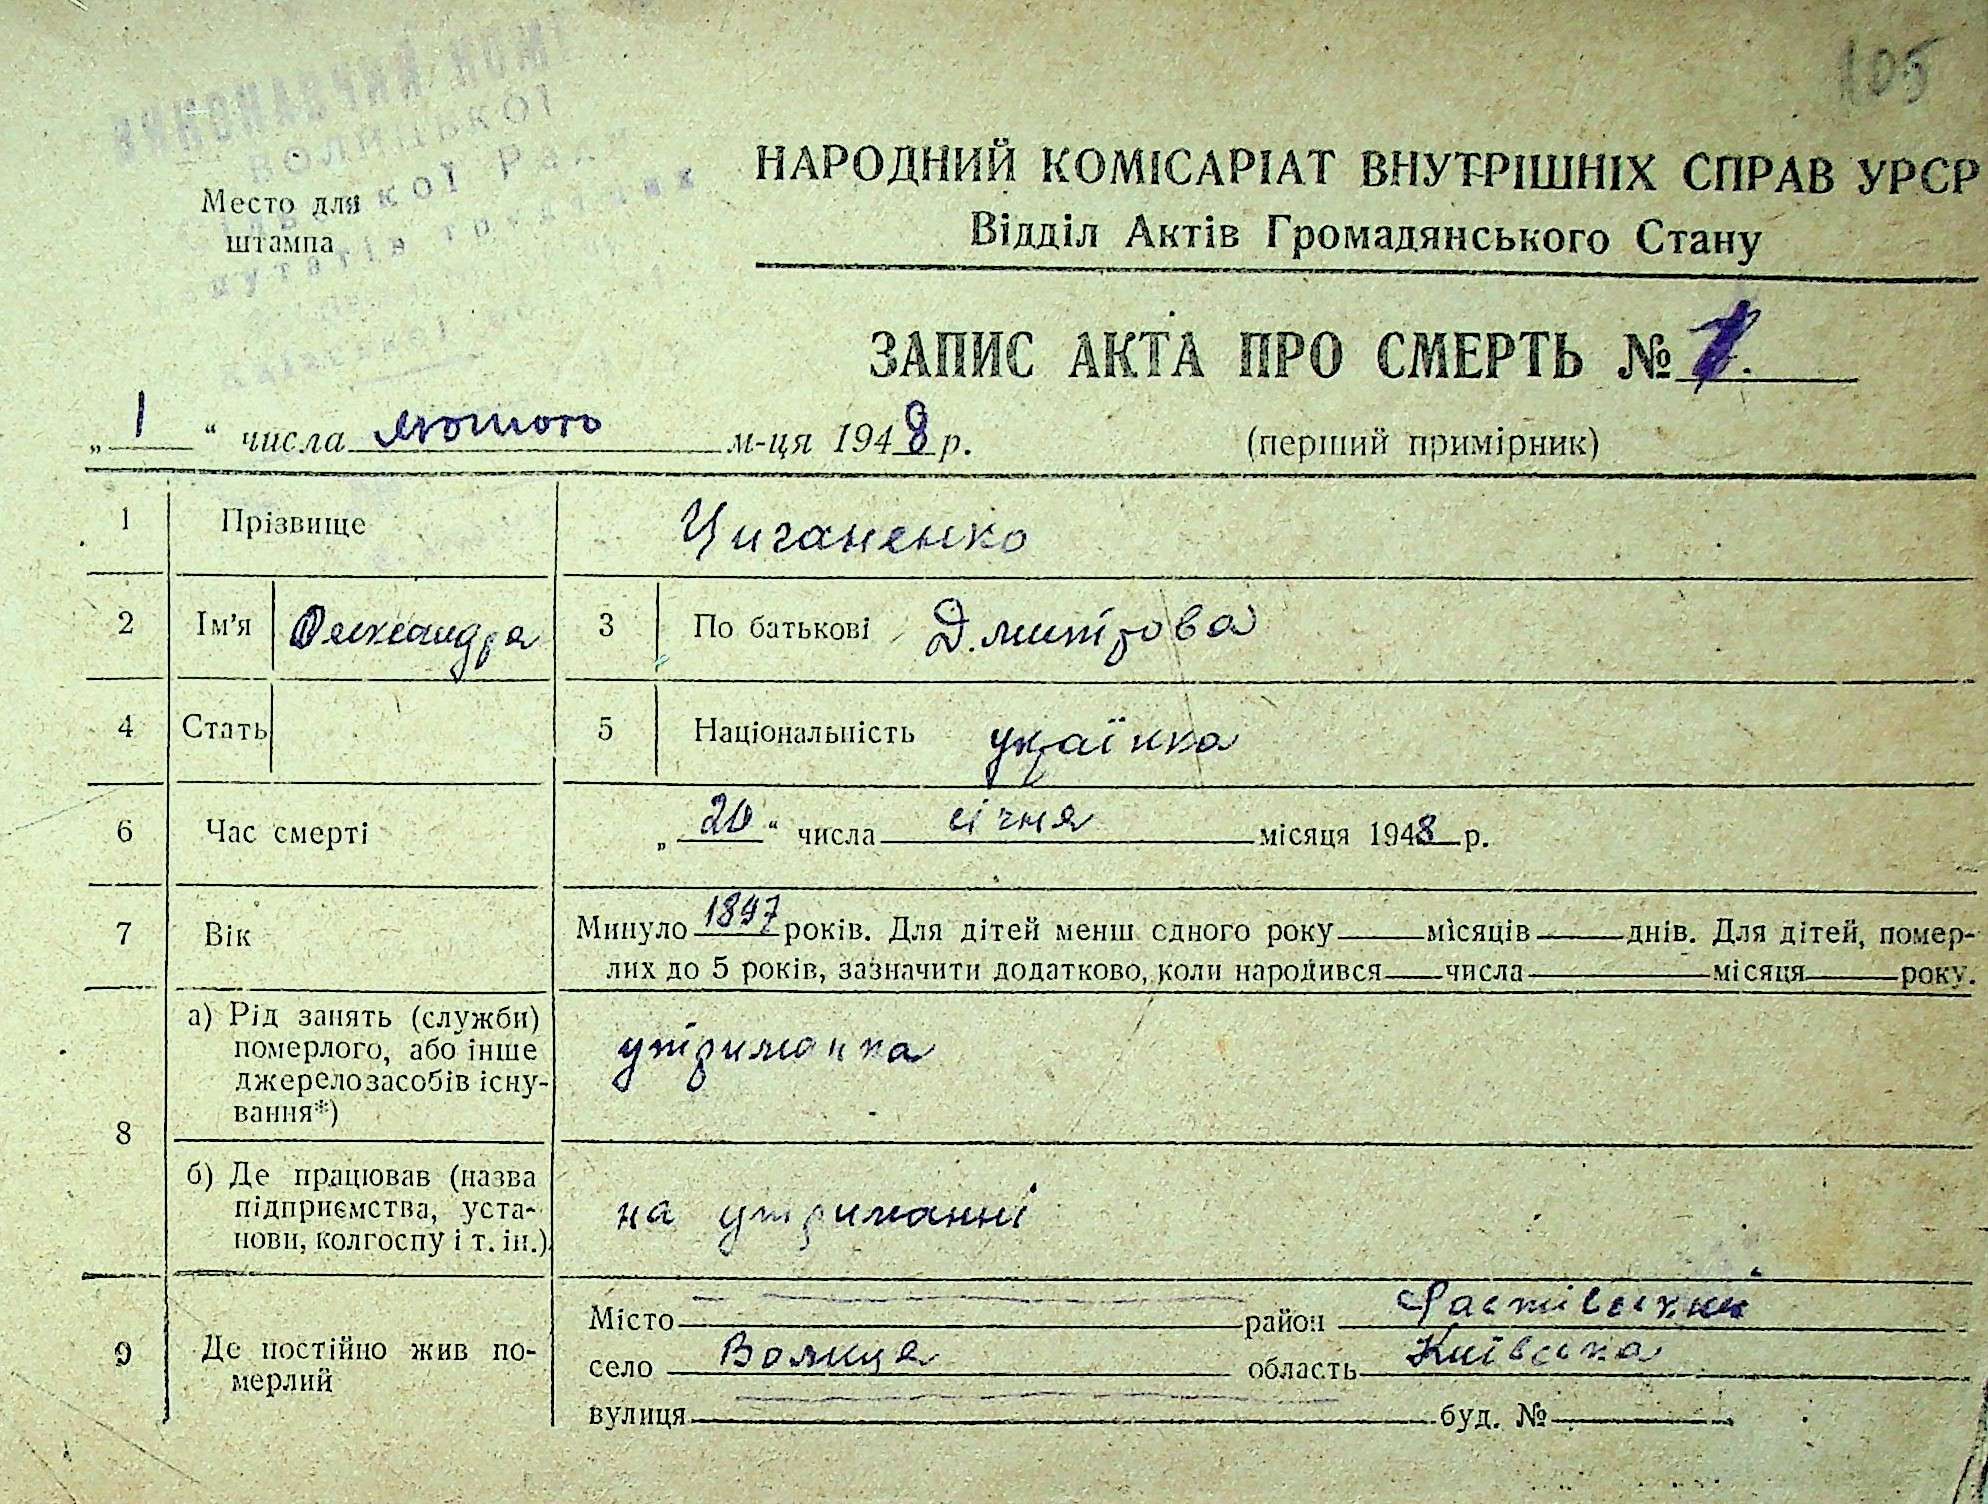 105
ВОЛИЦЬКОЇ
Сільської Ради
депутатів трудящих
Место для
штампа
НАРОДНИЙ КОМІСАРІАТ ВНУТРІШНІХ СПРАВ УРСР
Відділ Актів Громадянського Стану
ЗАПИС АКТА ПРО СМЕРТЬ №
„ 1 “ числа лютого м-ця 1948 р. (перший примірник)
1 Прізвище Циганенко
2 Ім'я Олександра 3 По батькові Дмитрова
4 Стать 5 Національність українка
6 Час смерті „ 20 “ числа січня місяця 1948 р.
7 Вік Минуло 1897 років. Для дітей менш одного року місяців днів. Для дітей, помер-
лих до 5 років, зазначити додатково, коли народився числа місяця року.
8 а) Рід занять (служби)
померлого, або інше
джерело засобів існу-
вання*)
утриманка
б) Де працював (назва
підприємства, уста-
нови, колгоспу і т. ін.)
на утриманні
9 Де постійно жив по-
мерлий
Місто район Фастівський
село Волиця область Київська
вулиця буд. №